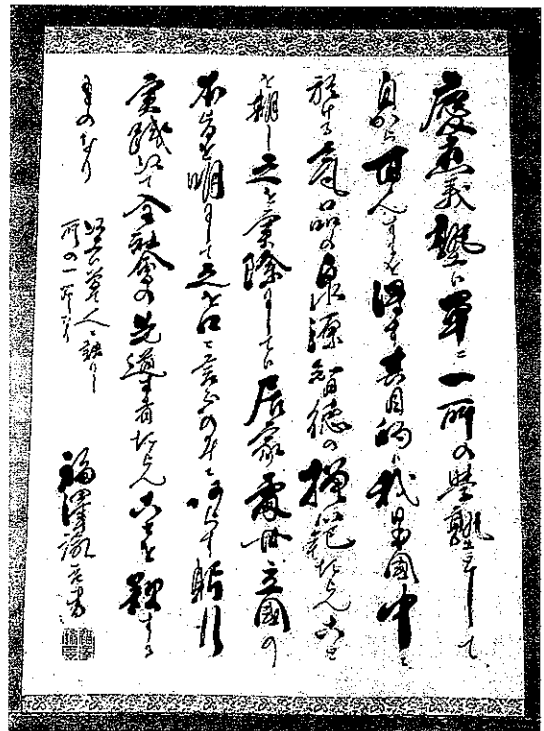 慶應義塾ハ單ニ一所の學塾として
自から甘んするを得す其目的ハ我日本國中ニ
於ける氣品の泉源智徳の模範たらんこと
を期し之を實際ニしてハ居家處世立國の
本旨を明ニして之を口ニ言ふのみニあらす躬行
實践以て全社會の先導者たらんことを欲する
ものなり
以上曽て人ニ語りし
所の一節なり
福澤諭吉書